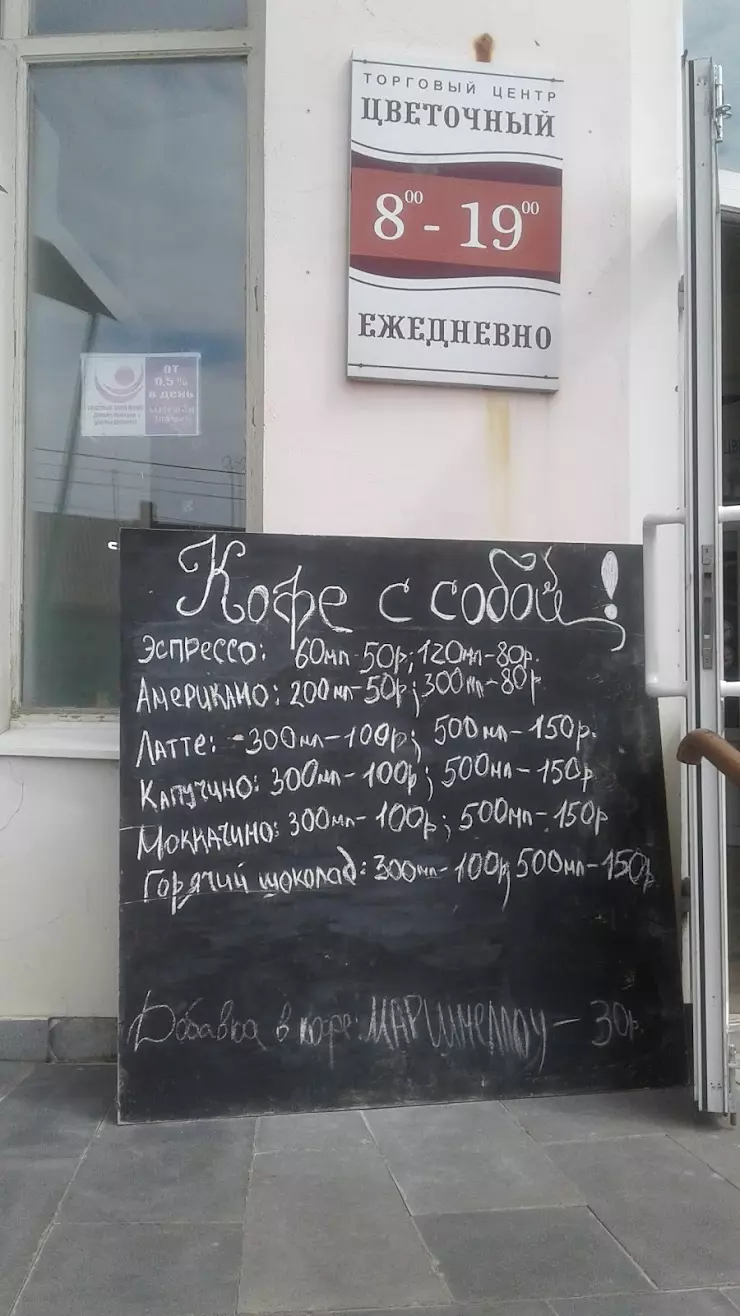 ТОРГОВЫЙ ЦЕНТР
ЦВЕТОЧНЫЙ
8⁰⁰ - 19⁰⁰
ЕЖЕДНЕВНО
ОТ
0,5%
В ДЕНЬ
Кофе с собой!
Эспрессо: 60мл-50р; 120мл-80р.
Американо: 200мл-50р; 300мл-80р
Латте: -300мл-100р; 500мл-150р.
Капучино: 300мл-100р; 500мл-150р
Моккачино: 300мл-100р; 500мл-150р
Горячий шоколад: 300мл-100р, 500мл-150р.
Добавка в кофе: МАРШМЕЛЛОУ - 30р.